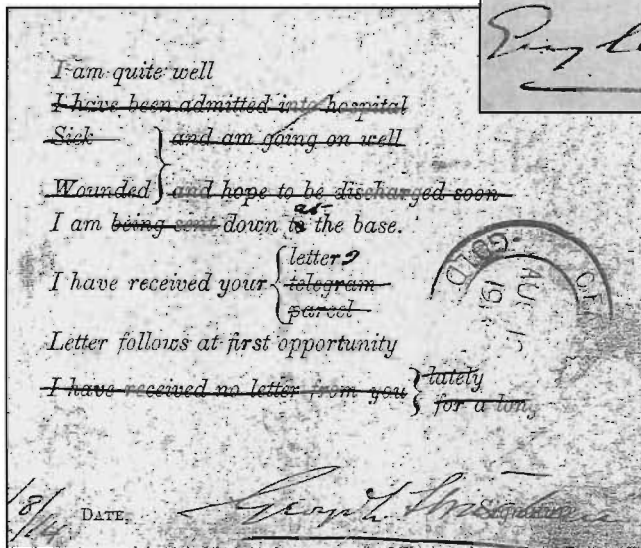 I am quite well
I have been admitted into hospital
Sick
and am going on well
Wounded
and hope to be discharged soon
I am being sent down to at the base.
I have received your
letter s
telegram
parcel
Letter follows at first opportunity
I have received no letter from you
lately
for a long
AUG
191
18/
14
DATE,